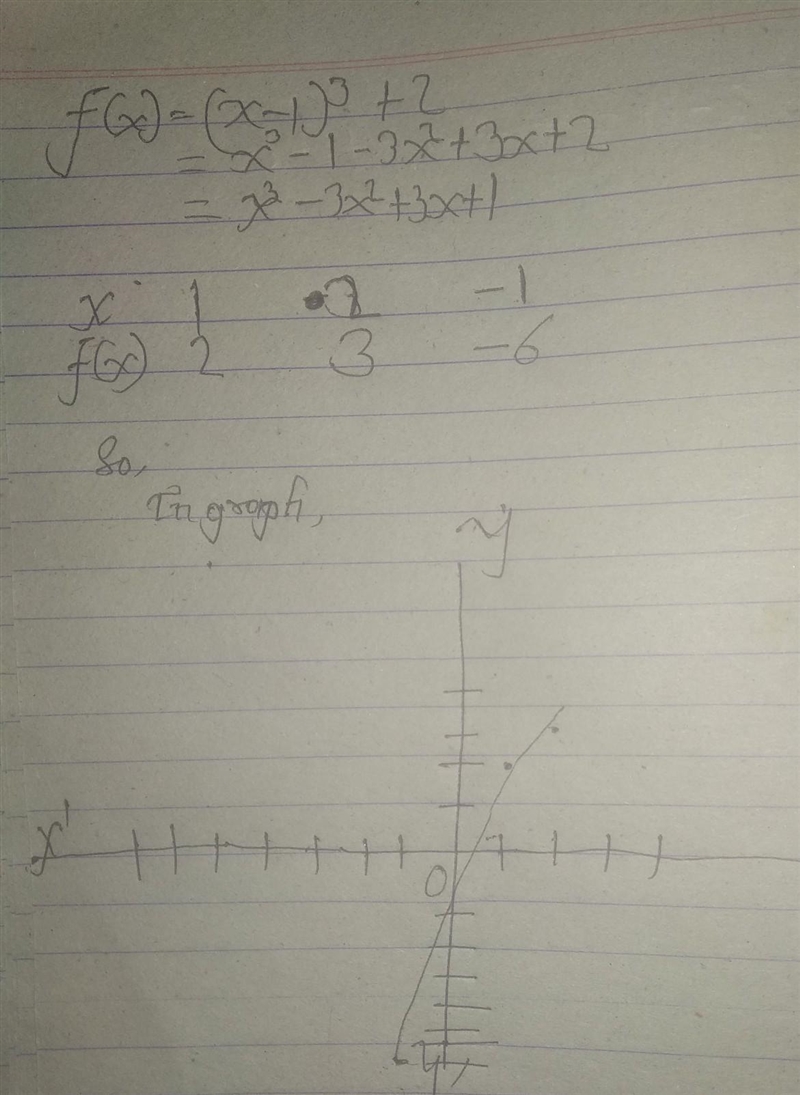 f(x) = (x-1)³ + 2
= x³ - 1 - 3x² + 3x + 2
= x³ - 3x² + 3x + 1
x 1 2 -1
f(x) 2 3 -6
So,
In graph,
y
x'
O
y'